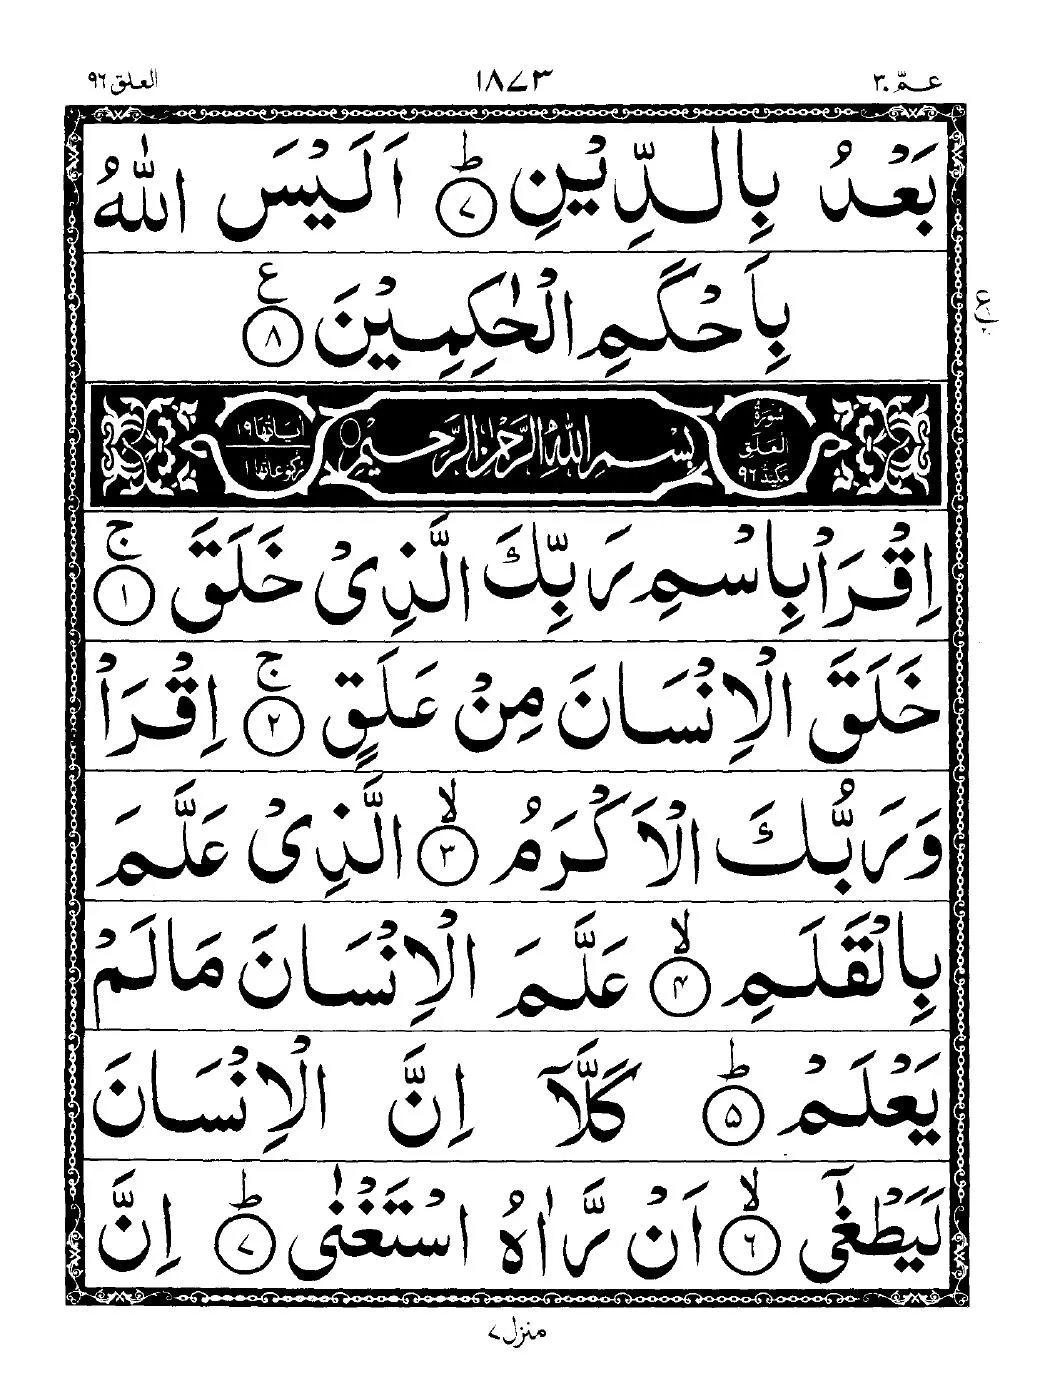 عمّ ٣٠ ١٨٧٣ العلق ٩٦
بَعْدُ بِالدِّيْنِ ؕ‏ ﴿۷﴾ اَلَيْسَ اللّٰهُ
بِاَحْكَمِ الْحٰكِمِيْنَ ﴿۸﴾ ع
ع
سُوْرَةُ الْعَلَقِ مَكِّيَّةٌ ٩٦ بِسْمِ اللّٰهِ الرَّحْمٰنِ الرَّحِيْمِ اٰيَاتُهَا ١٩ رُكُوْعَاتُهَا ١
اِقْرَاْ بِاسْمِ رَبِّكَ الَّذِىْ خَلَقَ ۚ ﴿۱﴾
خَلَقَ الْاِنْسَانَ مِنْ عَلَقٍ ۚ ﴿۲﴾ اِقْرَاْ
وَرَبُّكَ الْاَكْرَمُ ۙ ﴿۳﴾ الَّذِىْ عَلَّمَ
بِالْقَلَمِ ۙ ﴿۴﴾ عَلَّمَ الْاِنْسَانَ مَا لَمْ
يَعْلَمْ ؕ ﴿۵﴾ كَلَّاۤ اِنَّ الْاِنْسَانَ
لَيَطْغٰٓى ۙ ﴿۶﴾ اَنْ رَّاٰهُ اسْتَغْنٰى ؕ ﴿۷﴾ اِنَّ
منزل ٧